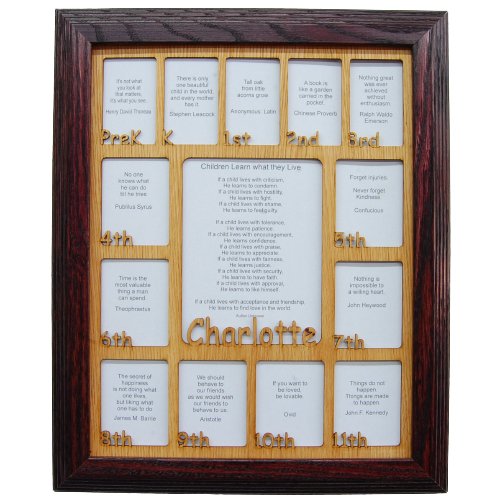 It's not what
you look at
that matters,
it's what you see.
Henry David Thoreau
PreK
There is only
one beautiful
child in the world,
and every mother
has it.
Stephen Leacock
K
Tall oak
from little
acorns grow.
Anonymous Latin
1st
A book is
like a garden
carried in the
pocket.
Chinese Proverb
2nd
Nothing great
was ever
achieved
without
enthusiasm.
Ralph Waldo
Emerson
3rd
No one
knows what
he can do
till he tries.
Publilius Syrus
4th
Children Learn what they Live
If a child lives with criticism,
He learns to condemn.
If a child lives with hostility,
He learns to fight.
If a child lives with shame,
He learns to feel guilty.
If a child lives with tolerance,
He learns patience.
If a child lives with encouragement,
He learns confidence.
If a child lives with praise,
He learns to appreciate.
If a child lives with fairness,
He learns justice.
If a child lives with security,
He learns to have faith.
If a child lives with approval,
He learns to like himself.
If a child lives with acceptance and friendship,
He learns to find love in the world.
Author Unknown
Charlotte
Forget injuries.
Never forget
Kindness.
Confucious
5th
Time is the
most valuable
thing a man
can spend.
Theophrastus
6th
Nothing is
impossible to
a willing heart.
John Heywood
7th
The secret of
happiness
is not doing what
one likes,
but liking what
one has to do.
James M Barrie
8th
We should
behave to
our friends
as we would wish
our friends to
behave to us.
Aristotle
9th
If you want to
be loved,
be lovable.
Ovid
10th
Things do not
happen.
Things are made
to happen.
John F. Kennedy
11th